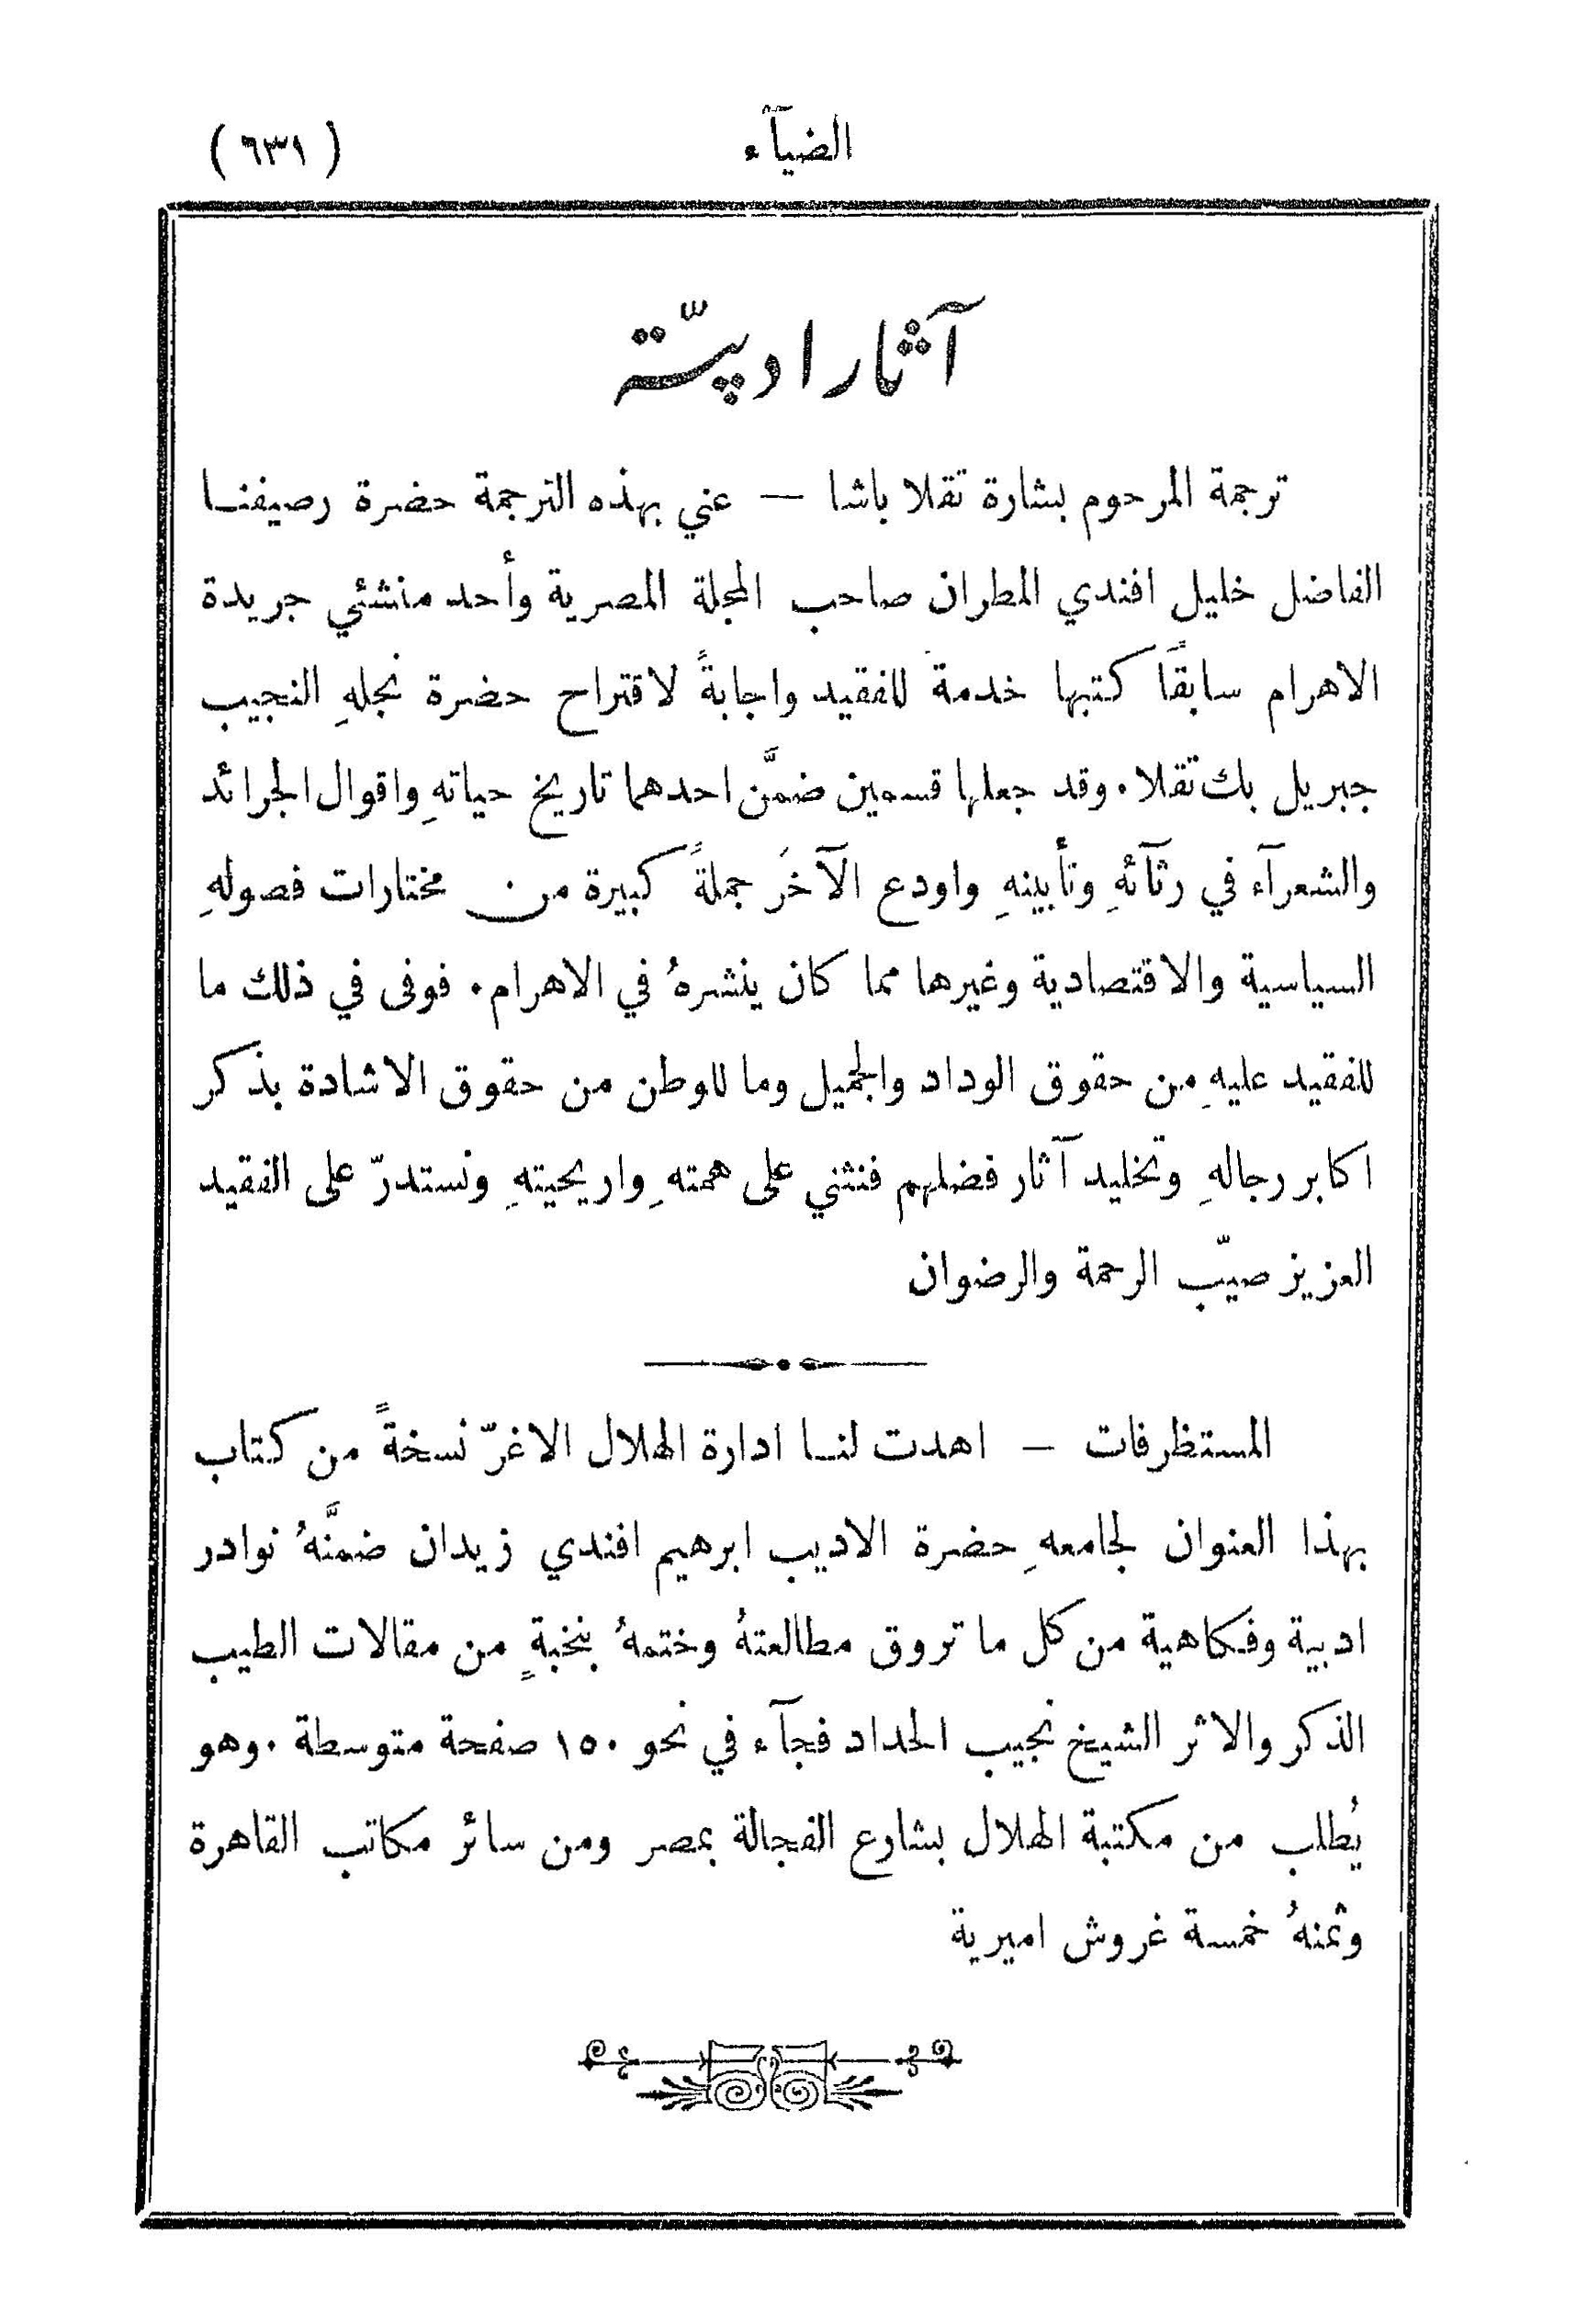 الضيآء
( ٦٣١ )
آثار ادبيّة
ترجمة المرحوم بشارة تقلا باشا — عني بهذه الترجمة حضرة رصيفنا
الفاضل خليل افندي المطران صاحب المجلة المصرية وأحد منشئي جريدة
الاهرام سابقًا كتبها خدمة للفقيد واجابةً لاقتراح حضرة نجلهِ النجيب
جبريل بك تقلا. وقد جعلها قسمين ضمَّن احدهما تاريخ حياتهِ واقوال الجرائد
والشعرآء في رثآئهِ وتأبينهِ واودع الآخَر جملةً كبيرة من مختارات فصولهِ
السياسية والاقتصادية وغيرها مما كان ينشرهُ في الاهرام. فوفى في ذلك ما
للفقيد عليهِ من حقوق الوداد والجميل وما للوطن من حقوق الاشادة بذكر
اكابر رجالهِ وتخليد آثار فضلهم فنثني على همتهِ واريحيتهِ ونستدرّ على الفقيد
العزيز صيّب الرحمة والرضوان
المستظرفات — اهدت لنا ادارة الهلال الاغرّ نسخةً من كتاب
بهذا العنوان لجامعهِ حضرة الاديب ابرهيم افندي زيدان ضمَّنهُ نوادر
ادبية وفكاهية من كل ما تروق مطالعتهُ وختمهُ بنخبةٍ من مقالات الطيب
الذكر والاثر الشيخ نجيب الحداد فجآء في نحو ١٥٠ صفحة متوسطة. وهو
يُطلب من مكتبة الهلال بشارع الفجالة بمصر ومن سائر مكاتب القاهرة
وثمنهُ خمسة غروش اميرية